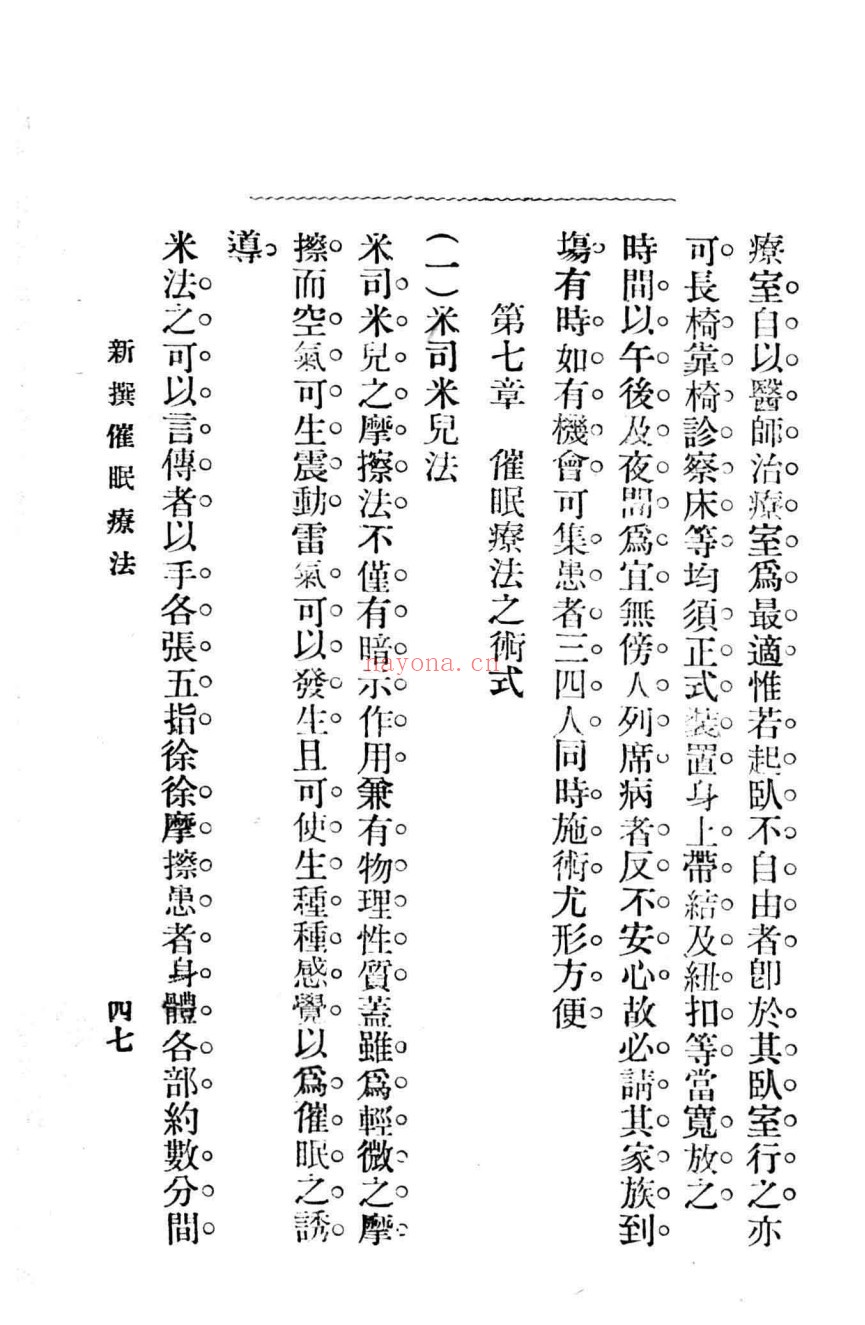 療室自以醫師治療室爲最適惟若起臥不自由者卽於其臥室行之亦
可長椅靠椅診察床等均須正式裝置身上帶結及紐扣等當寬放之
時間以午後及夜間爲宜無傍人列席病者反不安心故必請其家族到
塲有時如有機會可集患者三四人同時施術尤形方便
第七章　催眠療法之術式
(一)米司米兒法
米司米兒之摩擦法不僅有暗示作用兼有物理性質蓋雖爲輕微之摩
擦而空氣可生震動雷氣可以發生且可使生種種感覺以爲催眠之誘
導
米法之可以言傳者以手各張五指徐徐摩擦患者身體各部約數分間
新撰催眠療法
四七
nayona.cn